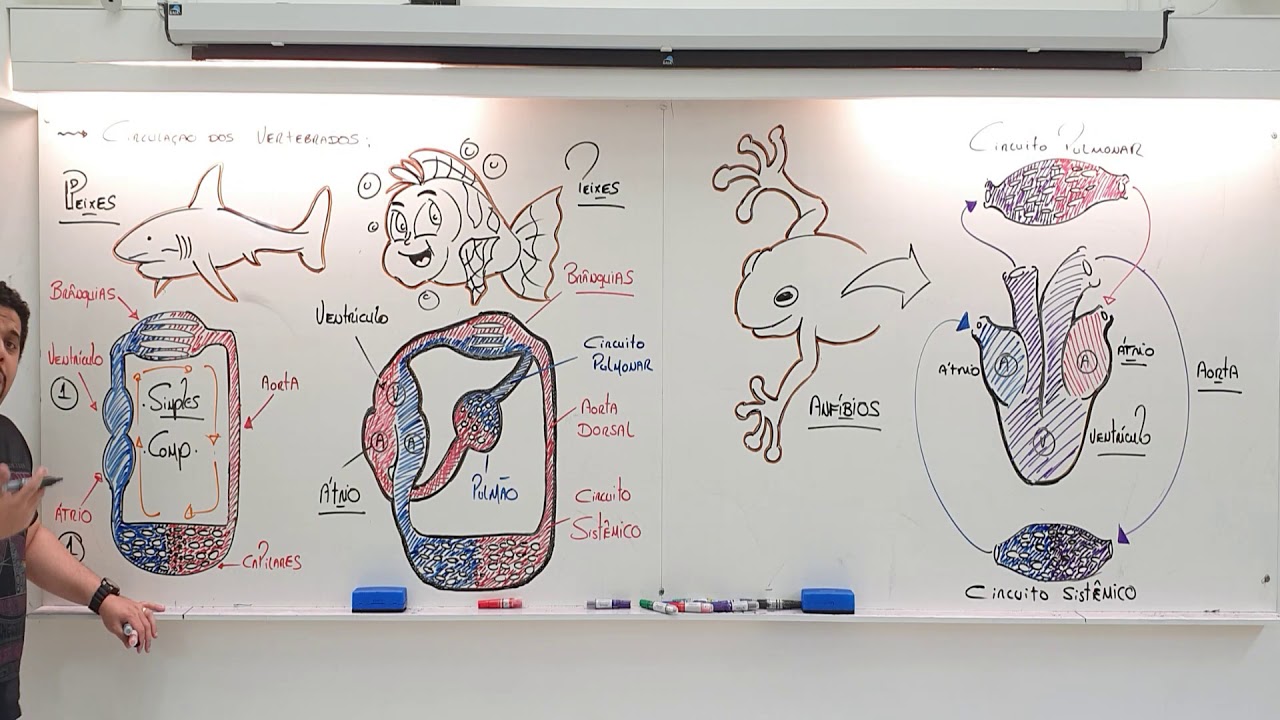 CIRCULAÇÃO DOS VERTEBRADOS:
PEIXES
BRÂNQUIAS
VENTRÍCULO
1
ÁTRIO
1
SIMPLES
COMP.
AORTA
CAPILARES
PEIXES
BRÂNQUIAS
VENTRÍCULO
V
A
A
ÁTRIO
CIRCUITO
PULMONAR
AORTA
DORSAL
PULMÃO
CIRCUITO
SISTÊMICO
ANFÍBIOS
CIRCUITO PULMONAR
ÁTRIO
A
A
ÁTRIO
AORTA
V
VENTRÍCULO
CIRCUITO SISTÊMICO